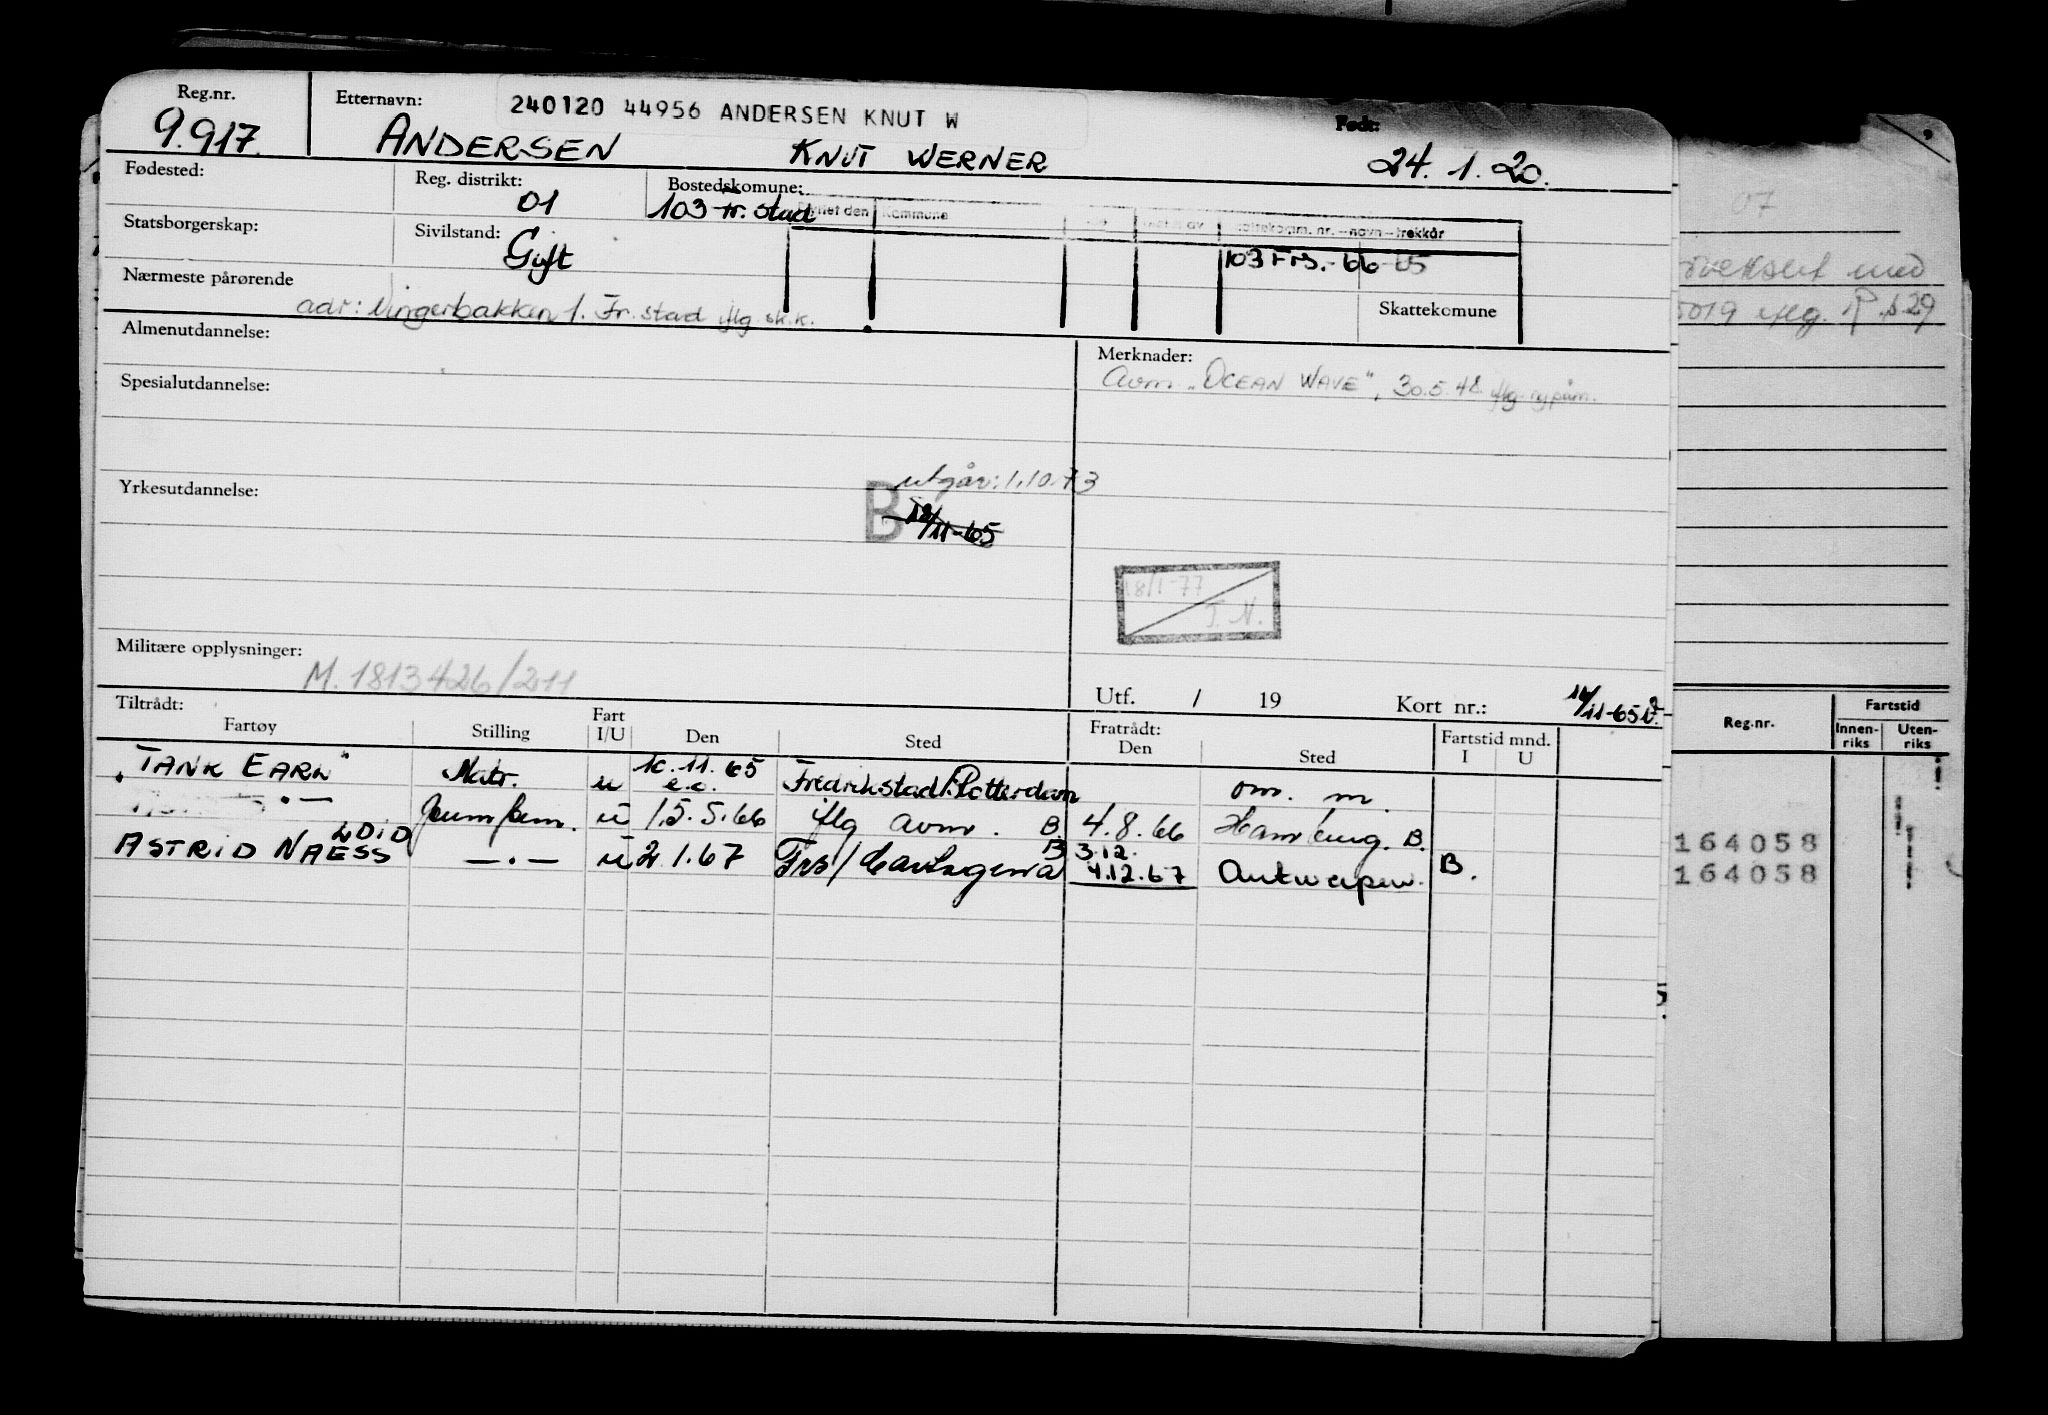 Reg.nr. Etternavn: 240120 44956 ANDERSEN KNUT W Født:
9.917. ANDERSEN KNUT WERNER 24. 1. 20.
Fødested: Reg. distrikt: Bostedskomune:
01 103 Fr. stad Flyttet den Kommune
Statsborgerskap: Sivilstand: Skattekomm. nr. – navn – trekkår
Gift 103 Frs. - 66 - 65
Nærmeste pårørende Skattekomune
adr: Vingerbakken 1. Fr. stad iflg. sk.k.
Almenutdannelse: Merknader:
Avm. "OCEAN WAVE", 30.5.48. iflg.
Spesialutdannelse:
utgår: 1.10.73
Yrkesutdannelse: B
18/11-65
18/1-77
T. N.
Militære opplysninger:
M. 1813426/211
Utf. / 19 Kort nr.: 16/11-65
Tiltrådt: Fratrådt:
Fartøy Stilling Fart I/U Den Sted Den Sted Fartstid mnd. I U
"TANK EARL" Matr. u 10.11.65 e.o. Fredrikstad/Rotterdam om. m.
— . — Pumpem. u 15.5.66 iflg avm. B. 4.8.66 Hamburg. B.
LDID B 3.12.
ASTRID NAESS — . — u 2.1.67 Frs/Cartagena 4.12.67 Antwerpen. B.
07
med
5019 iflg. s 29
Reg.nr. Fartstid
Innenriks Utenriks
164058
164058